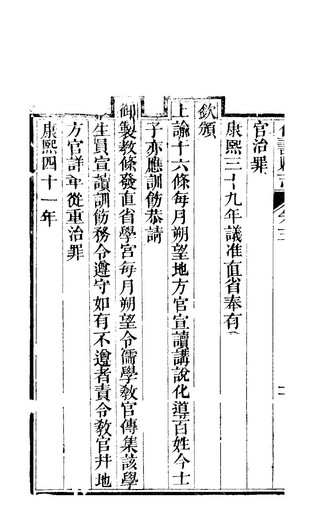 官治罪
康熙三十九年議准直省奉有
欽頒
上諭十六條每月朔望地方官宣讀講說化導百姓今士
子亦應訓飭恭請
御製教條發直省學宮每月朔望令儒學教官傳集該學
生員宣讀訓飭務令遵守如有不遵者責令教官并地
方官詳革從重治罪
康熙四十一年